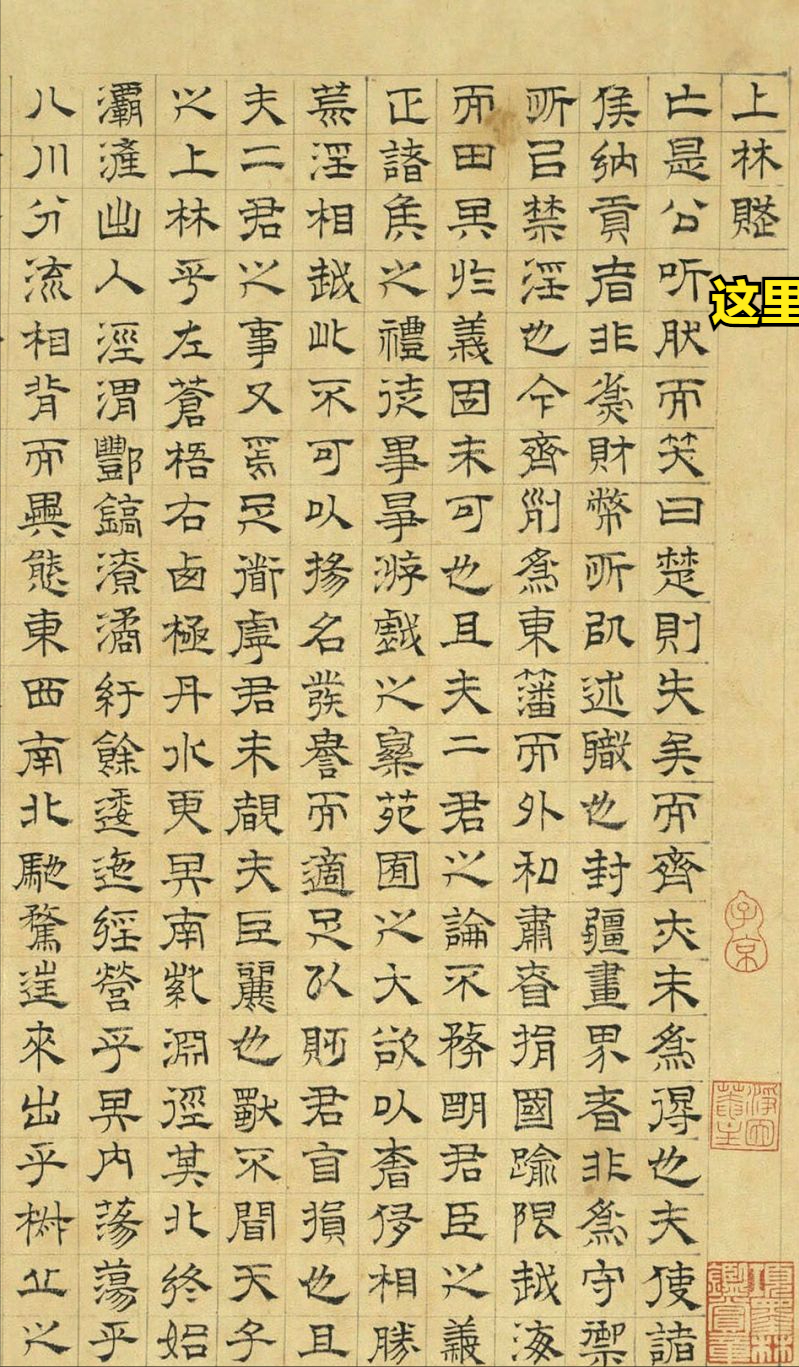 上林賦
亡是公听肰而笑曰楚則失矣而齊亦未為得也夫使諸
侯納貢者非為財幣所以述職也封疆畫界者非為守禦
所㠯禁淫也今齊列為東藩而外私肅眘捐國踰限越海
而田其於義固未可也且夫二君之論不務明君臣之義
正諸侯之禮徒事爭游戲之樂苑囿之大欲以奢侈相勝
荒淫相越此不可以揚名發譽而適足以貶君自損也且
夫二君之事又焉足道虖君未覩夫巨麗也獨不聞天子
之上林乎左蒼梧右西極丹水更其南紫淵徑其北終始
灞滻出入涇渭酆鎬潦潏紆餘逶迤經營乎其內蕩蕩乎
八川分流相背而異態東西南北馳騖往來出乎椒丘之
这里
子京